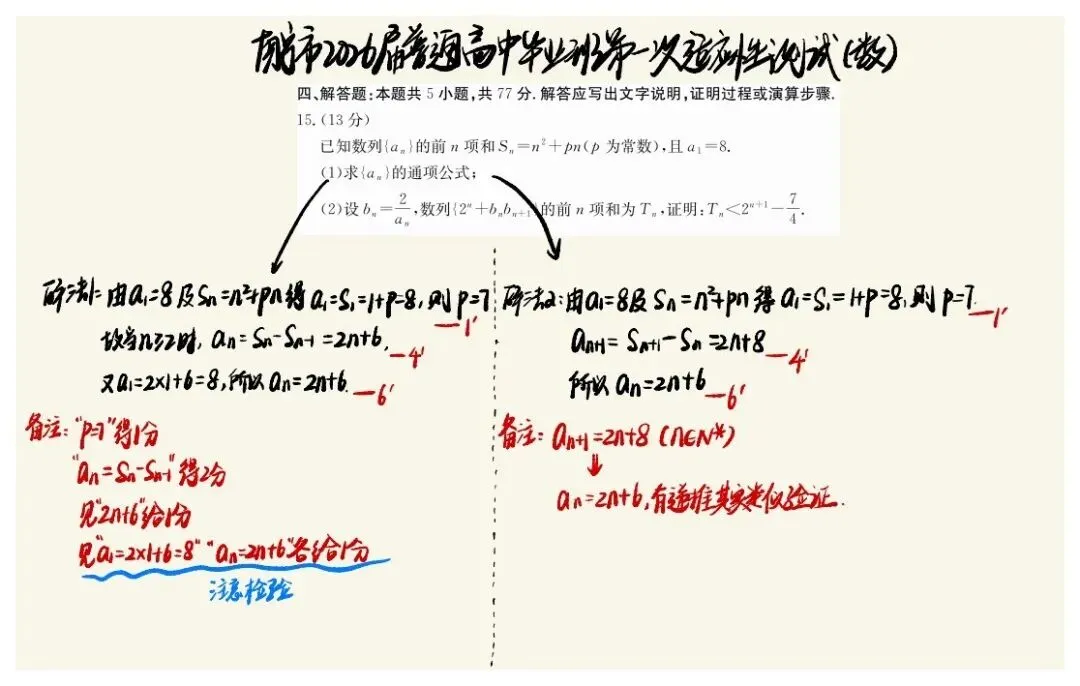 南宁市2026届普通高中毕业班第一次适应性测试(数)
四、解答题:本题共5小题,共77分.解答应写出文字说明,证明过程或演算步骤.
15.(13分)
已知数列{aₙ}的前n项和Sₙ=n²+pn(p为常数),且a₁=8.
(1)求{aₙ}的通项公式;
(2)设bₙ=2/aₙ,数列{2ⁿ+bₙbₙ₊₁}的前n项和为Tₙ,证明:Tₙ<2ⁿ⁺¹-7/4.
解法1:由a₁=8及Sₙ=n²+pn得a₁=S₁=1+p=8,则p=7 —1'
故当n≥2时,aₙ=Sₙ-Sₙ₋₁=2n+6, —4'
又a₁=2×1+6=8,所以aₙ=2n+6. —6'
备注:"p=7"得1分
"aₙ=Sₙ-Sₙ₋₁"得2分
见"2n+6"给1分
见"a₁=2×1+6=8""aₙ=2n+6"各给1分
注意检验
解法2:由a₁=8及Sₙ=n²+pn得a₁=S₁=1+p=8,则p=7. —1'
aₙ₊₁=Sₙ₊₁-Sₙ=2n+8 —4'
所以aₙ=2n+6 —6'
备注:aₙ₊₁=2n+8(n∈N*)
aₙ=2n+6,有递推其实类似验证.